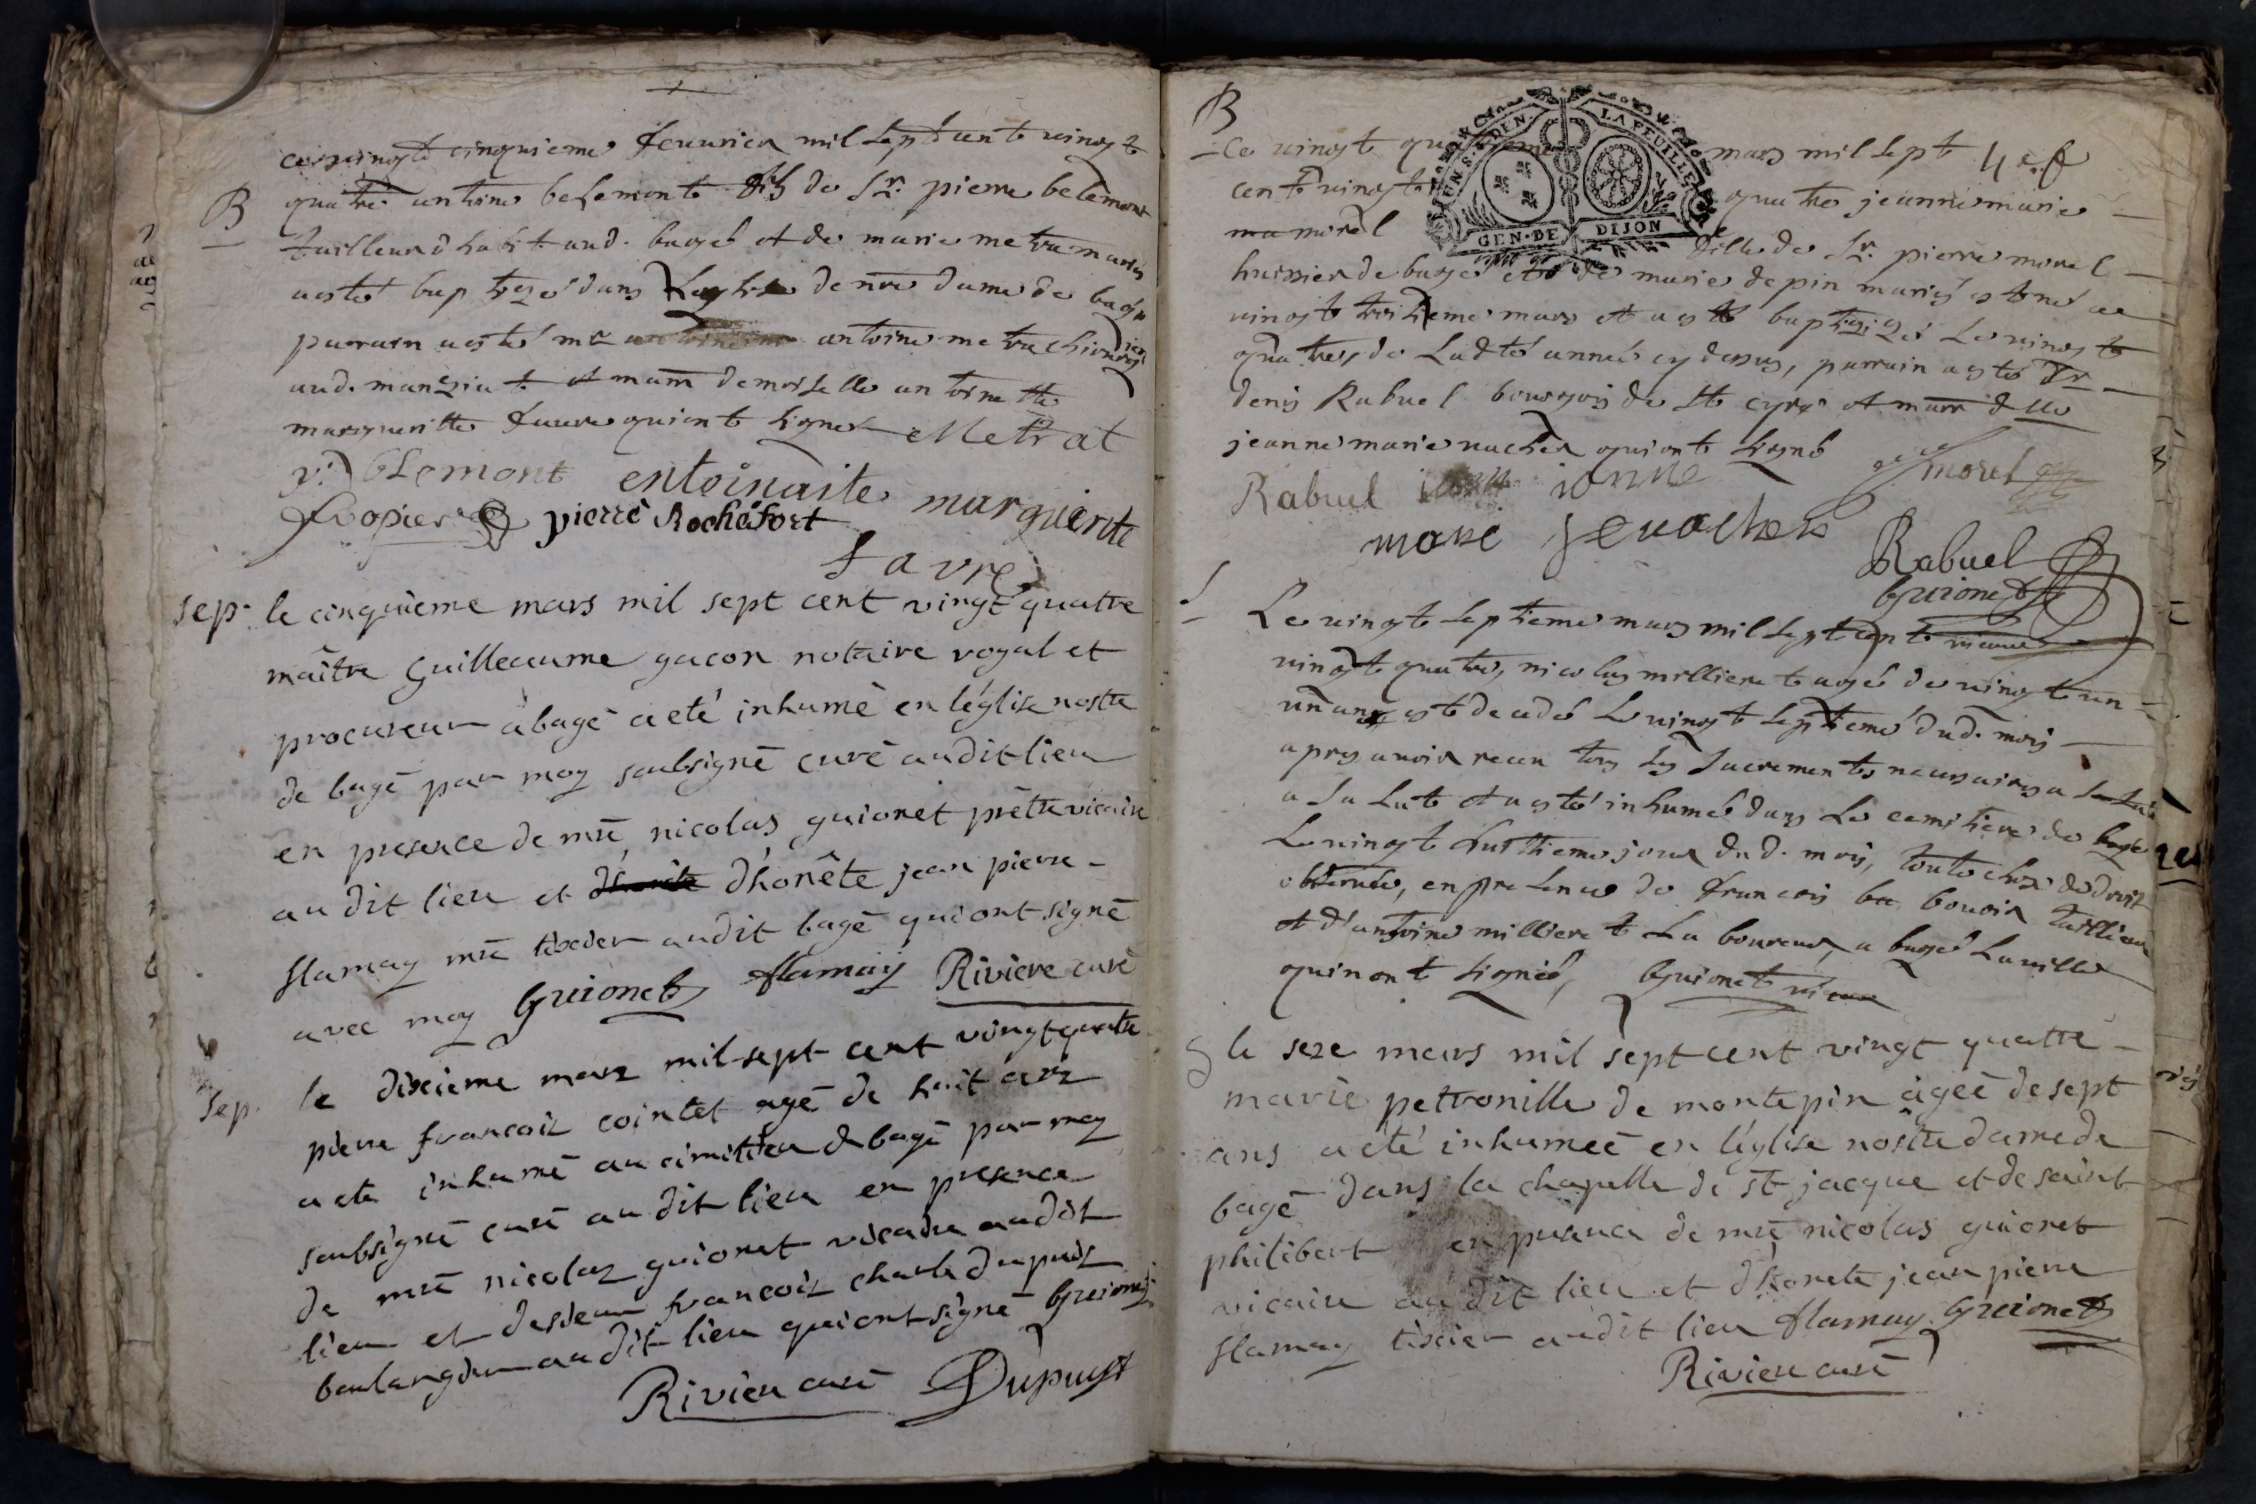 B
ce vingt cinquieme feuurier mil sept cent vingt
quatre antoine belemont fils de Sr. pierre belemont
tailleur d habit aud. bagé et de marie metra mariés
a esté baptizé dans Leglise de nre dame de bagé
parrain a esté mr antoine metra chirurgien
aud. manziat et marr demoiselle antoinette
margueritte faure qui ont signé Metrat
p. blemont entoinaite marguerite
pierre Rochefort
favre
sep. le cinquieme mars mil sept cent vingt quatre
maître Guilleaume gacon notaire royal et
procureur a bagé a eté inhumé en l'église nostre
de bagé par moy soubsigné curé audit lieu
en presence de mre nicolas guionet prêtre vicaire
au dit lieu et d'honête jean pierre -
flamay mre tixier audit bagé qui ont signé
avec moy Guionet flamay Riviere curé
sep. le dixieme mars mil sept cent vingt quatre
pierre francois cointet agé de huit ans
a eté inhumé au cimitiere de bagé par moy
soubsigné curé au dit lieu en presence
de mre nicolas guionet vicaire audit
lieu et de sieur francois charle dupuis
boulanger au dit lieu qui ont signé Guionet
Riviere curé Dupuis
B
GEN·DE DIJON
LA FEUILLE
Ce vingt quatrieme mars mil sept
cent vingt quatre jeanne marie
ma morel fille de Sr. pierre morel
huissier de bagé et de marie depin mariés est né ce
vingt troisieme mars et a esté baptizé Le vingt
quatre de Ladte année cy dessus, parrain a esté Sr
denis Rabuel bourgois de St cyre et marr dlle
jeanne marie vacher qui ont signé
Rabuel janne morel
marie vacher
Rabuel
Guionet
S Le vingt septieme mars mil sept cent
vingt quatre, nicolas milliere t agé de vingt un
un ans est decedé Le vingt septieme dud. mois
apres avoir receu tous les Sacrements necessaires a
a Sa Lut et a esté inhumé dans Le cemitiere de bagé
Le vingt huittieme jour dud. mois, toute chose de droit
observée, en presence de francois bouvier tailleur
et d'antoine milliere t La boureur, a bagé La ville
qui n ont signé, Guionet vicaire
S le seze mars mil sept cent vingt quatre -
marie petronille de montepin ageé de sept
ans a eté inhumeé en l'église nostre dame de
bagé dans la chapelle de st jacque et de saint
philibert en presence de mre nicolas guionet
vicaire au dit lieu et d'honete jean pierre
flamay tixier audit lieu flamay Guionet
Riviere curé